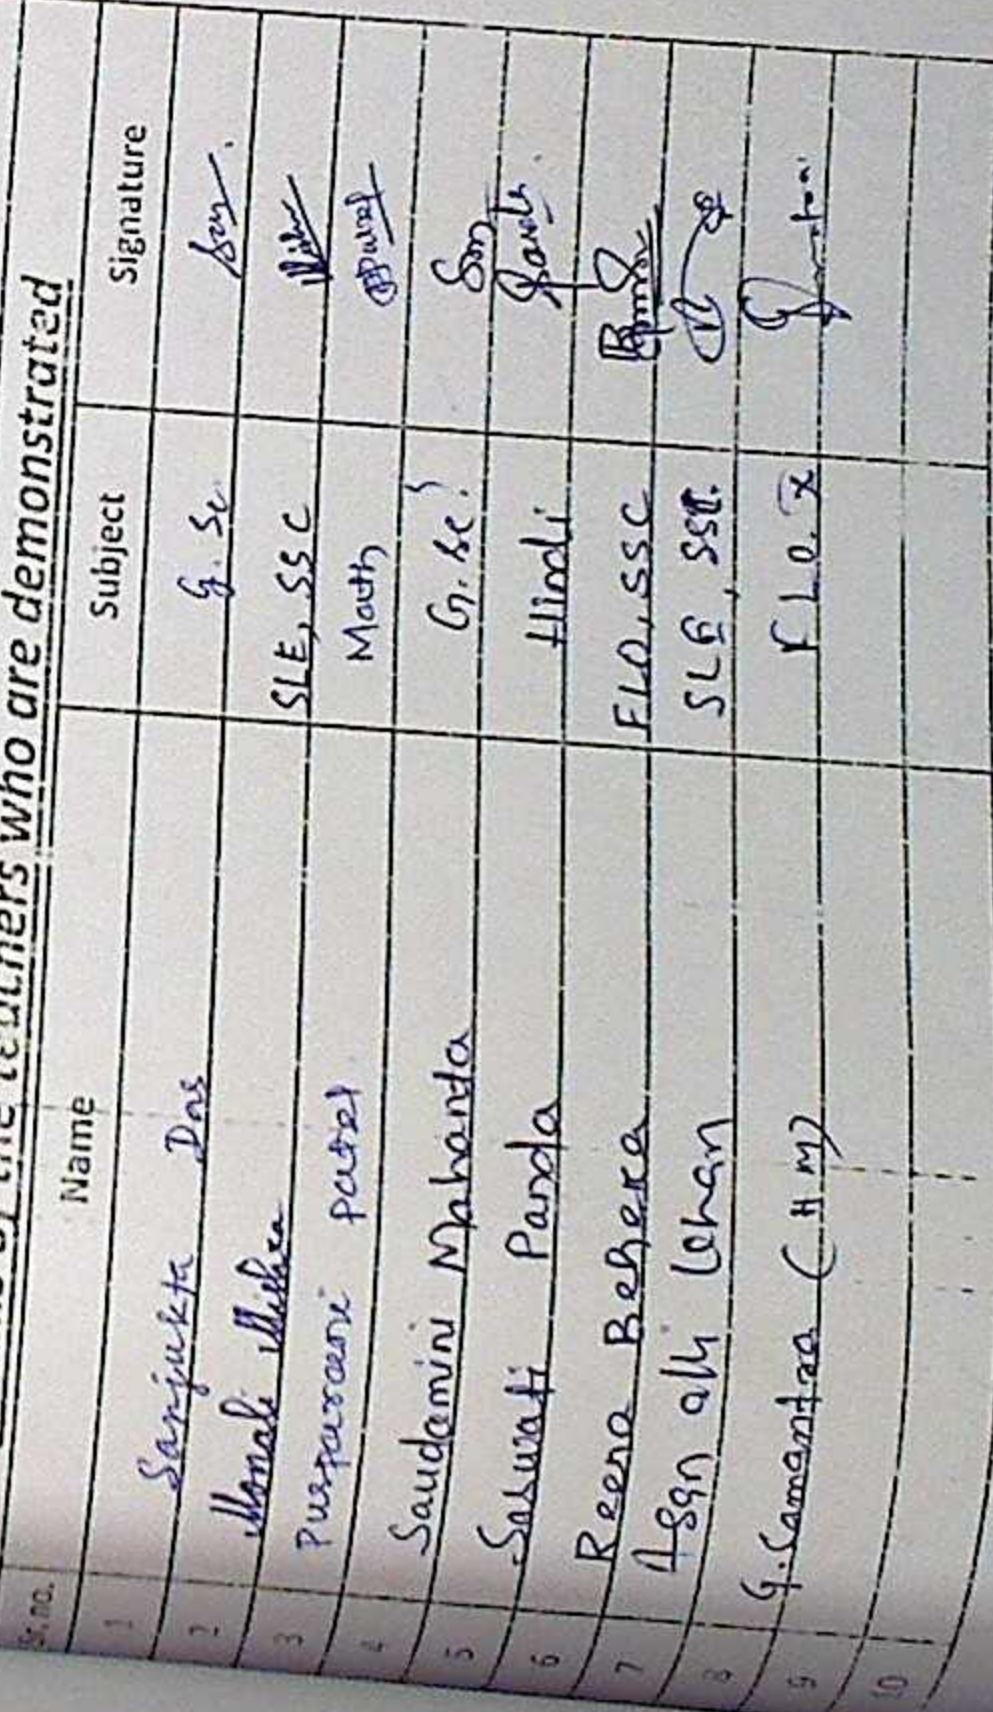 of the teachers who are demonstrated
Sr.no. Name Subject Signature
1 Sanjukta Das G. Sc.
2 Monali Mishra SLE, SSC
3 Pusparani patel Math
4
5 Saudamini Mahanta G. Sc.
6 Saswati Panda Hindi
7 Reena Behera FLO, SSC
8 Ali Khan SLE, SSC.
9 G. Samantra (HM) FLO.
10